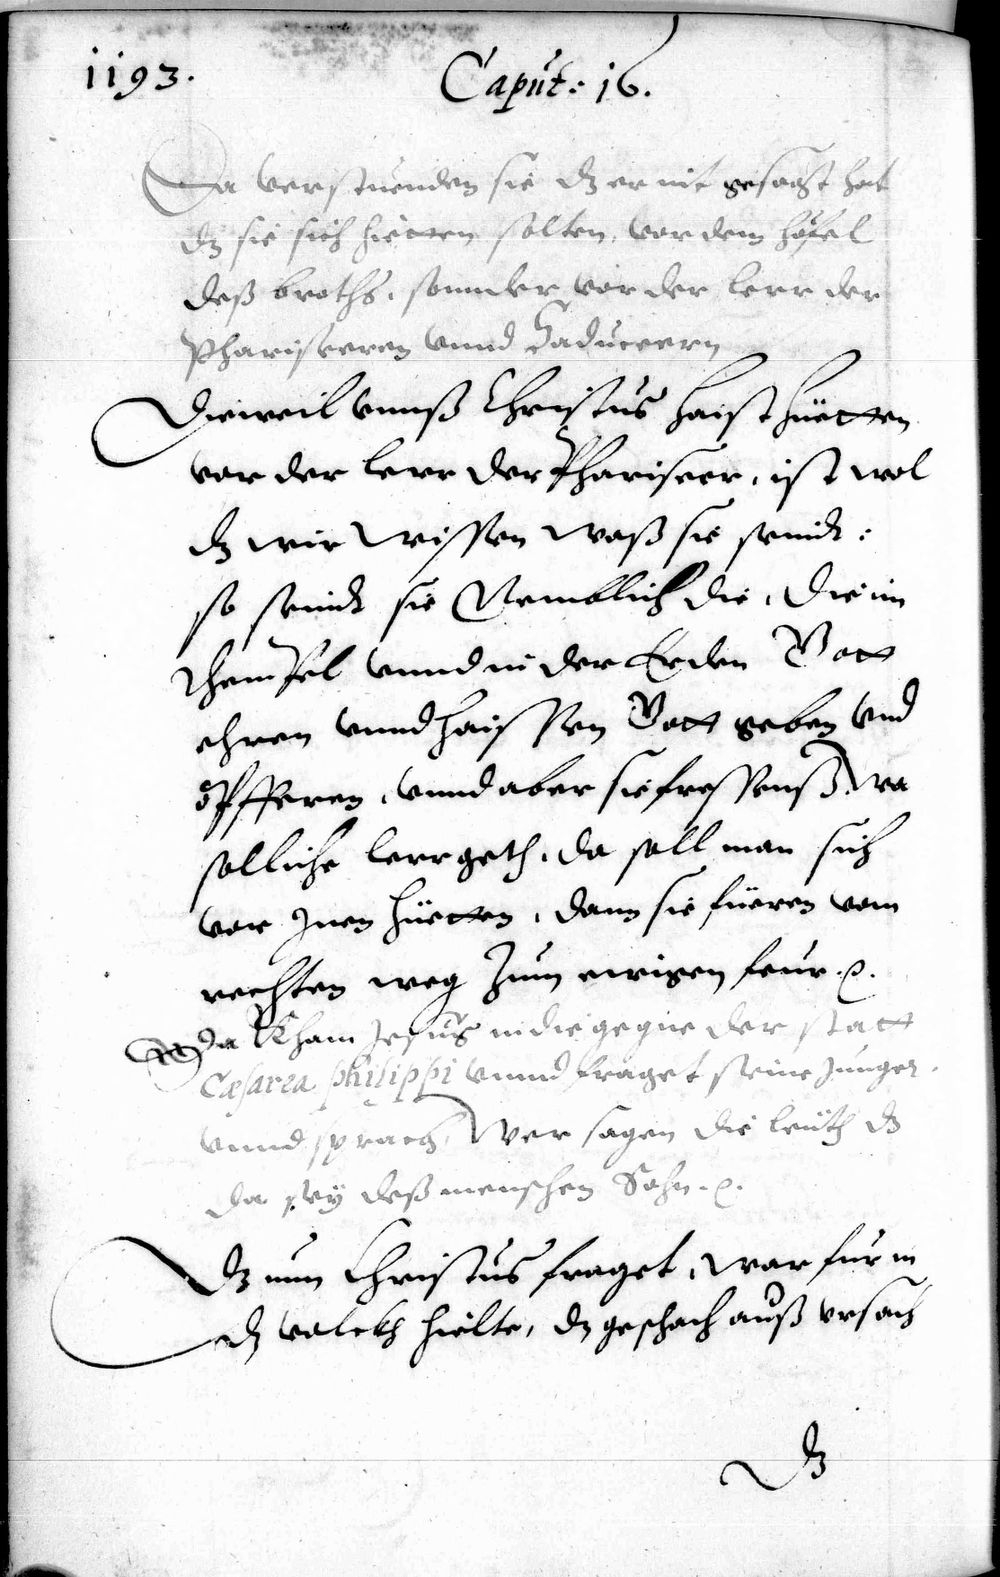 1193. Caput: 16.
Da verstuenden sie dz er nit gesagt hat
dz sie sich hietten solten, vor dem höfel
deß broths, sonnder vor der leer der
Phariseeren vnnd Saduceern
Dieweil vnnß Christus haist hüetten
vor der leer der Phariseer, ist wol
dz wir wissen waß sie seindt:
so seindt sie Nemblich die, die im
Thempel vnnd in der Erden Gott
ehren vnnd haissen Gott geben vnd
opfferen, vnnd aber sie fressenß, wa
solliche leer geth, da soll man sich
vor Inen hüetten, dann sie füeren vom
rechten weg zum ewigen feur. ꝛc.
Da Kham Jesus in die gegne der statt
Cæsarea philippi vnnd fraget seine Junger
vnnd sprach, Wer sagen die leüth dz
da sey deß menschen Sohn. ꝛc.
Dz nun Christus fraget, war für in
dz volckh hielte, dz geschach auß vrsach
Dz